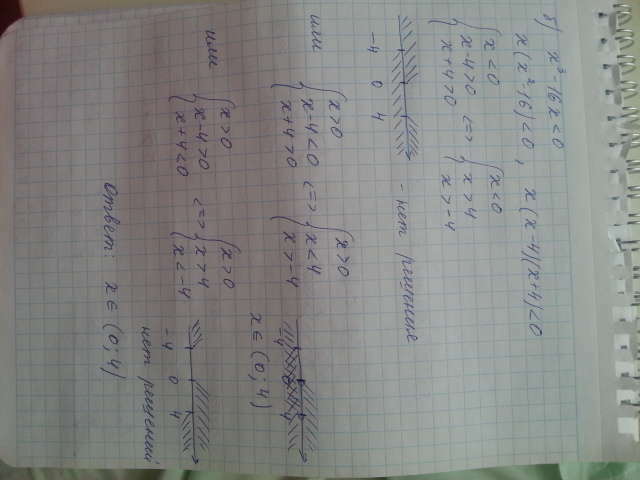 8) x³-16x<0
x(x²-16)<0, x(x-4)(x+4)<0
{ x<0
{ x-4>0 <=> { x>4
{ x+4>0 { x>-4
{ x<0
-4 0 4 - нет решение
или { x>0
{ x-4<0 <=> { x<4
{ x+4>0 { x>-4
{ x>0
-4 0 4
x∈(0;4)
или { x>0
{ x-4>0 <=> { x>4
{ x+4<0 { x<-4
{ x>0
-4 0 4
нет решений
Ответ: x∈(0;4)